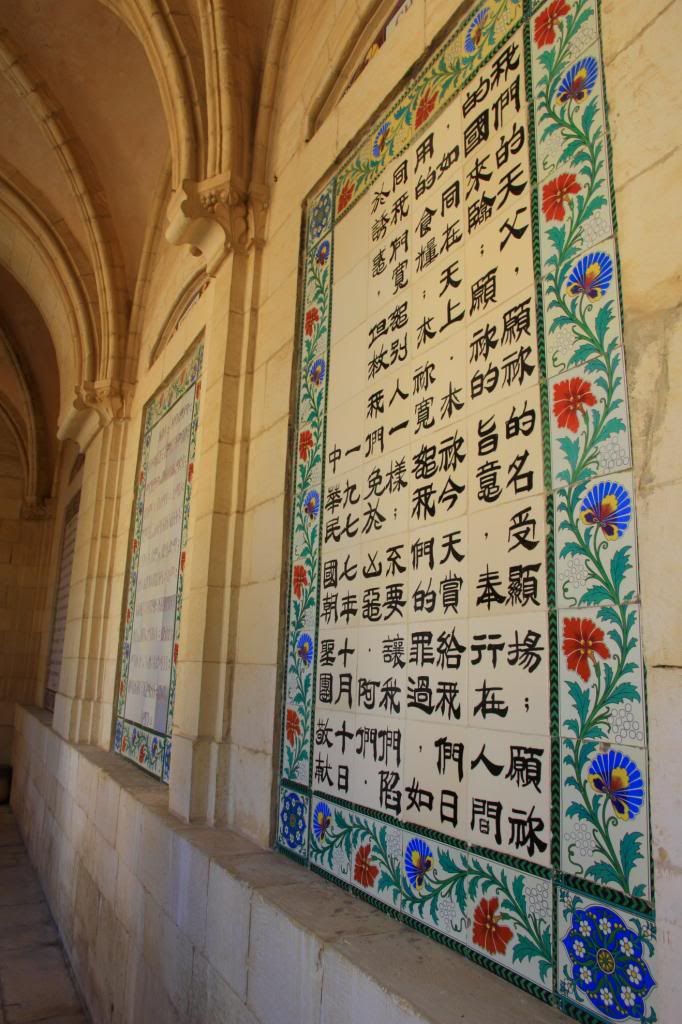 我們的天父，願祢的名受顯揚；願祢
的國來臨；願祢的旨意，奉行在人間
，如同在天上．求祢今天賞給我們日
用的食糧；求祢寬恕我們的罪過，如
同我們寬恕別人一樣；不要讓我們陷
於誘惑，但救我們免於凶惡．阿們．
一九七七年十月十日
中華民國朝聖團敬獻